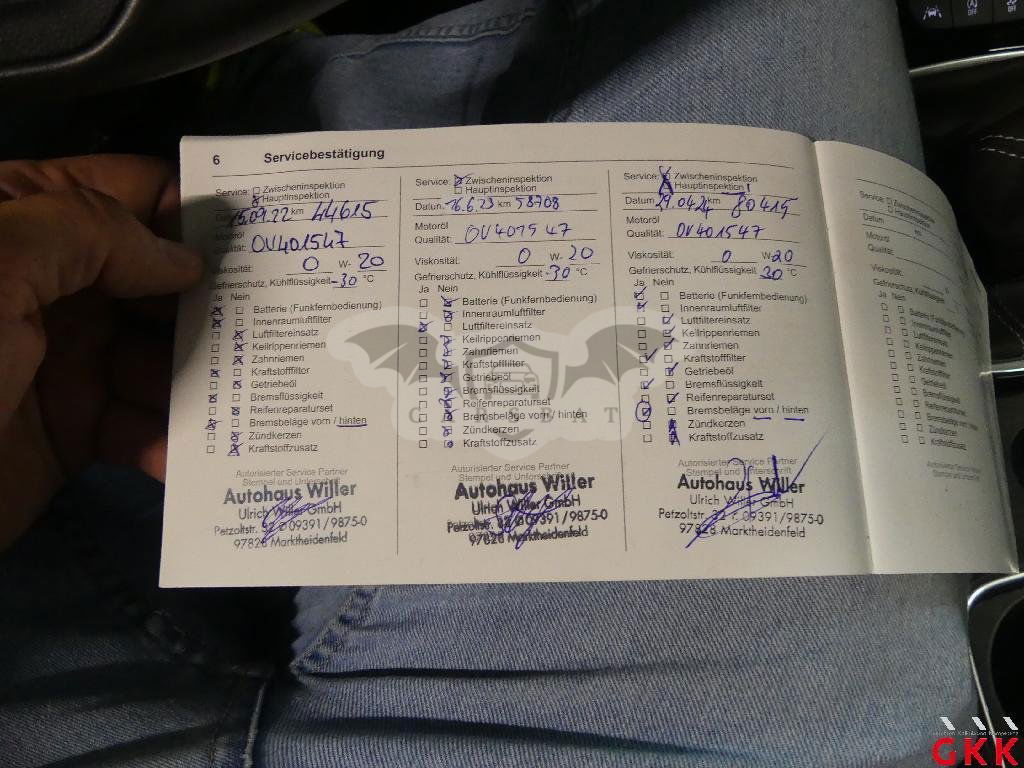 6 Servicebestätigung
Service: Zwischeninspektion
Hauptinspektion
15.09.22 km 44615
Motoröl
Qualität: OV401547
Viskosität: 0 W- 20
Gefrierschutz, Kühlflüssigkeit -30 °C
Ja Nein
Batterie (Funkfernbedienung)
Innenraumluftfilter
Luftfiltereinsatz
Keilrippenriemen
Zahnriemen
Kraftstofffilter
Getriebeöl
Bremsflüssigkeit
Reifenreparaturset
Bremsbeläge vorn / hinten
Zündkerzen
Kraftstoffzusatz
Autorisierter Service Partner
Stempel und Unterschrift
Autohaus Willer
Ulrich Willer GmbH
Petzoltstr. 32 09391/9875-0
97828 Marktheidenfeld
Service: Zwischeninspektion
Hauptinspektion
Datum 16.6.23 km 58708
Motoröl
Qualität: OV401547
Viskosität: 0 W- 20
Gefrierschutz, Kühlflüssigkeit -30 °C
Ja Nein
Batterie (Funkfernbedienung)
Innenraumluftfilter
Luftfiltereinsatz
Keilrippenriemen
Zahnriemen
Kraftstofffilter
Getriebeöl
Bremsflüssigkeit
Reifenreparaturset
Bremsbeläge vorn / hinten
Zündkerzen
Kraftstoffzusatz
Autorisierter Service Partner
Stempel und Unterschrift
Autohaus Willer
Ulrich Willer GmbH
Petzoltstr. 32 09391/9875-0
97828 Marktheidenfeld
Service: Zwischeninspektion
Hauptinspektion
Datum 29.04.24 km 80415
Motoröl
Qualität: OV401547
Viskosität: 0 W- 20
Gefrierschutz, Kühlflüssigkeit 30 °C
Ja Nein
Batterie (Funkfernbedienung)
Innenraumluftfilter
Luftfiltereinsatz
Keilrippenriemen
Zahnriemen
Kraftstofffilter
Getriebeöl
Bremsflüssigkeit
Reifenreparaturset
Bremsbeläge vorn / hinten
Zündkerzen
Kraftstoffzusatz
Autorisierter Service Partner
Stempel und Unterschrift
Autohaus Willer
Ulrich Willer GmbH
Petzoltstr. 32 09391/9875-0
97828 Marktheidenfeld
Service: Zwischeninspektion
Hauptinspektion
Datum km
Motoröl
Qualität:
Viskosität:
Gefrierschutz, Kühlflüssigkeit
Ja Nein
Batterie (Funkfernbedienung)
Innenraumluftfilter
Luftfiltereinsatz
Keilrippenriemen
Zahnriemen
Kraftstofffilter
Getriebeöl
Bremsflüssigkeit
Reifenreparaturset
Bremsbeläge vorn / hinten
Zündkerzen
Kraftstoffzusatz
Autorisierter Service Partner
Stempel und Unterschrift
CARSBAT
GKK